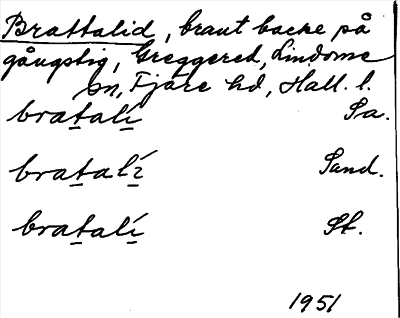 Brattalid, brant backe på
gångstig, Greggered, Lindome
sn, Fjäre hd, Hall. l.
bratalí Sa.
bratalí Sand.
bratalí St.
1951